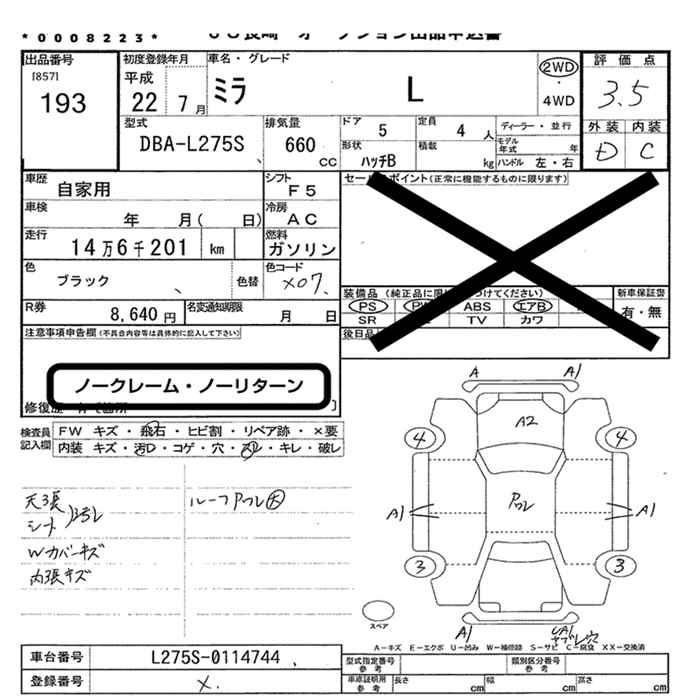 *0008223*
出品番号
[857]
193
初度登録年月
平成
22 7月
車名・グレード
ミラ L
2WD
・
4WD
評価点
3.5
外装 内装
D C
型式
DBA-L275S
排気量
660
CC
ドア
5
定員
4 人
ディーラー・並行
形状
ハッチB
積載
kg
モデル年式
年
ハンドル 左・右
車歴
自家用
シフト
F5
車検
年 月( 日)
冷房
AC
走行
14万6千201 km
燃料
ガソリン
色
ブラック
色替
色コード
X07
R券
8,640円
名変通知期限
月 日
ポイント(正常に機能するものに限ります)
装備品
PS
ABS
エアB
SR
TV
カワ
新車保証書
有・無
後日品
注意事項申告欄(不具合内容等は具体的に記入して下さい)
ノークレーム・ノーリターン
検査員
記入欄
FW キズ・飛石・ヒビ割・リペア跡・×要
内装 キズ・汚D・コゲ・穴・スレ・キレ・破レ
天張
シート
Wカバーキズ
内張キズ
A
A1
A2
4
4
A1
A1
3
3
A1
スペア
A-キズ E-エクボ U-凹み W-補修跡 S-サビ C-腐食 XX-交換済
車台番号
L275S-0114744
登録番号
X.
型式指定番号
参考
類別区分番号
参考
車庫証明用
参考
長さ
cm
幅
cm
高さ
cm